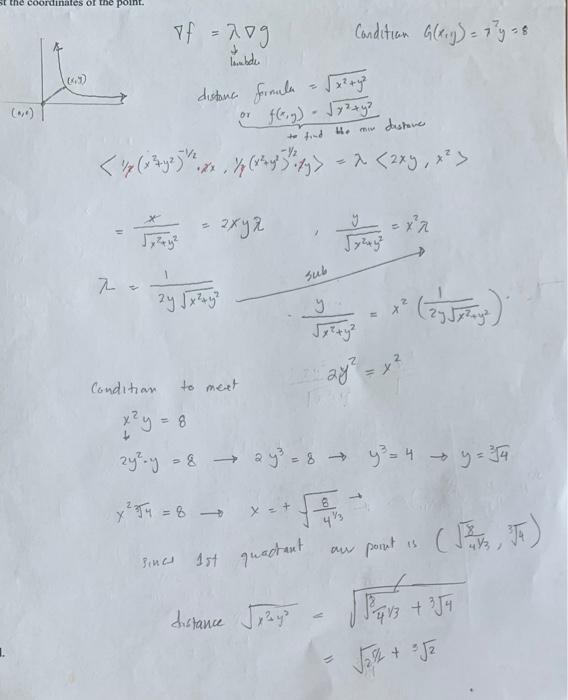 st the coordinates of the point.
∇f = λ∇g
lambda
Condition G(x,y) = x²y = 8
(x,y)
(0,0)
distanc formula = √x²+y²
or f(x,y) = √x²+y²
to find the min distance
< 1/2 (x²+y²)^-1/2 · 2x , 1/2 (x²+y²)^-1/2 · 2y > = λ < 2xy , x² >
= x/√x²+y² = 2xyλ , y/√x²+y² = x²λ
λ = 1/2y√x²+y²
sub
y/√x²+y² = x² (1/2y√x²+y²)
2y² = x²
Condition to meet
x²y = 8
2y²·y = 8 → 2y³ = 8 → y³ = 4 → y = ³√4
x² ³√4 = 8 → x = + √8/4^1/3 →
since 1st quadrant our point is (√8/4^1/3, ³√4)
distance √x²+y² = √√8/4^1/3 + ³√4